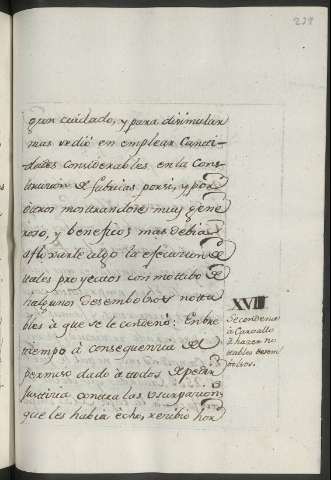 238
gran cuidado, y para disimular
mas urdió en emplear Canti-
dades considerables en la Cons-
trucion de fabricas por si, y por
otros mostrandose muy gene
roso, y benefico; mas debia
afloxarle algo la efecucion de
tales proyectos con mottibo de
algunos desembolsos notta
bles à que se le condenó: Entre
tiempo à consequencia del
permiso dado à todos de pedir
Justicia contra las usurpacion.s
que les habia echo, recibio hor
XVII
Se condena
à Carvallo
à hazer no
tables desem
bolsos.